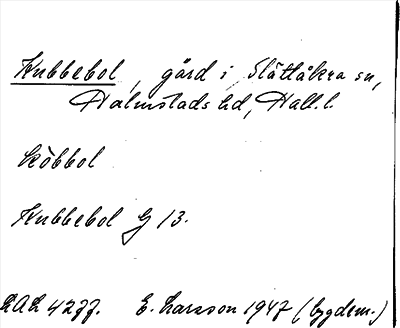 Kubbebol, gård i Slättåkra sn,
Halmstads hd, Hall. l.
köbbol
Kubbebol G 13.
LAL 4277. E. Larsson 1947 (bygdem.)